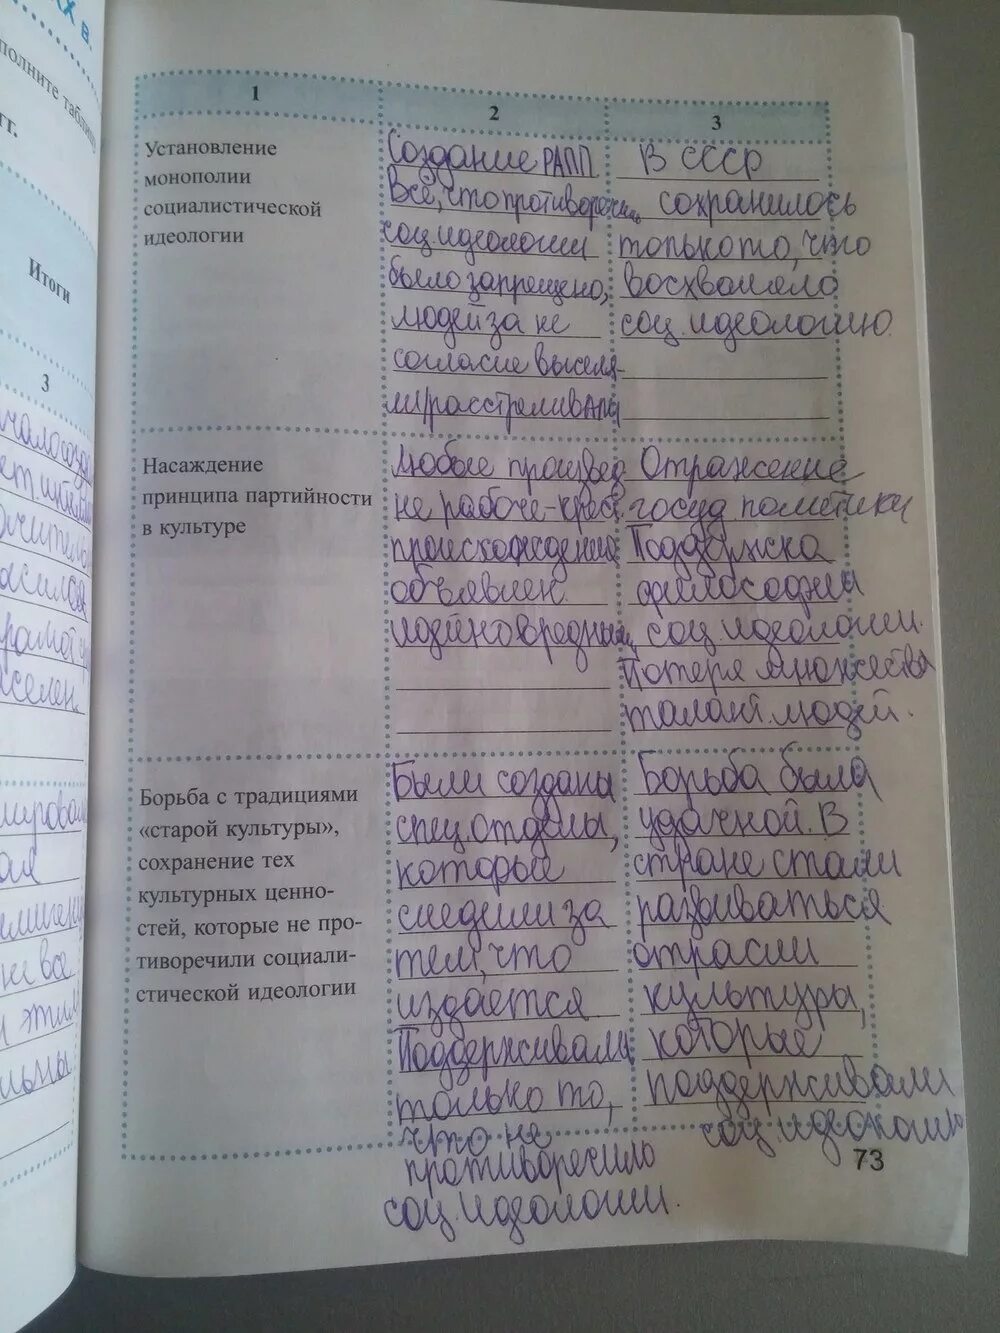 IX в.
полните таблицу
гг.
Итоги
3
1
2
3
Установление
монополии
социалистической
идеологии
Создание РАПП
Всё, что противоречило
соц. идеологии
было запрещено,
людей за не
согласие выселя-
ли, расстреливали
В СССР
сохранилось
только то, что
восхваляло
соц. идеологию.
Насаждение
принципа партийности
в культуре
Любые произвед
не рабоче-крест
происхождения
объявлен.
идейно вредными
Отражение
госуд политики
Поддержка
философии
соц. идеологии.
Потеря множества
талант. людей.
Борьба с традициями
«старой культуры»,
сохранение тех
культурных ценно-
стей, которые не про-
тиворечили социали-
стической идеологии
Были созданы
спец. отделы,
которые
следили за
тем, что
издаётся
Поддерживали
только то,
что не
противоречило
соц. идеологии.
Борьба была
удачной. В
стране стали
развиваться
отрасли
культуры,
которые
поддерживали
соц. идеологию
73